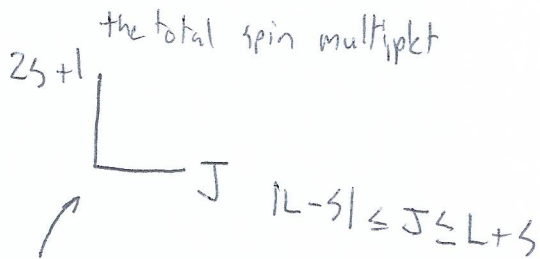 the total spin multiplet
2S+1
L J
|L-S| ≤ J ≤ L+S